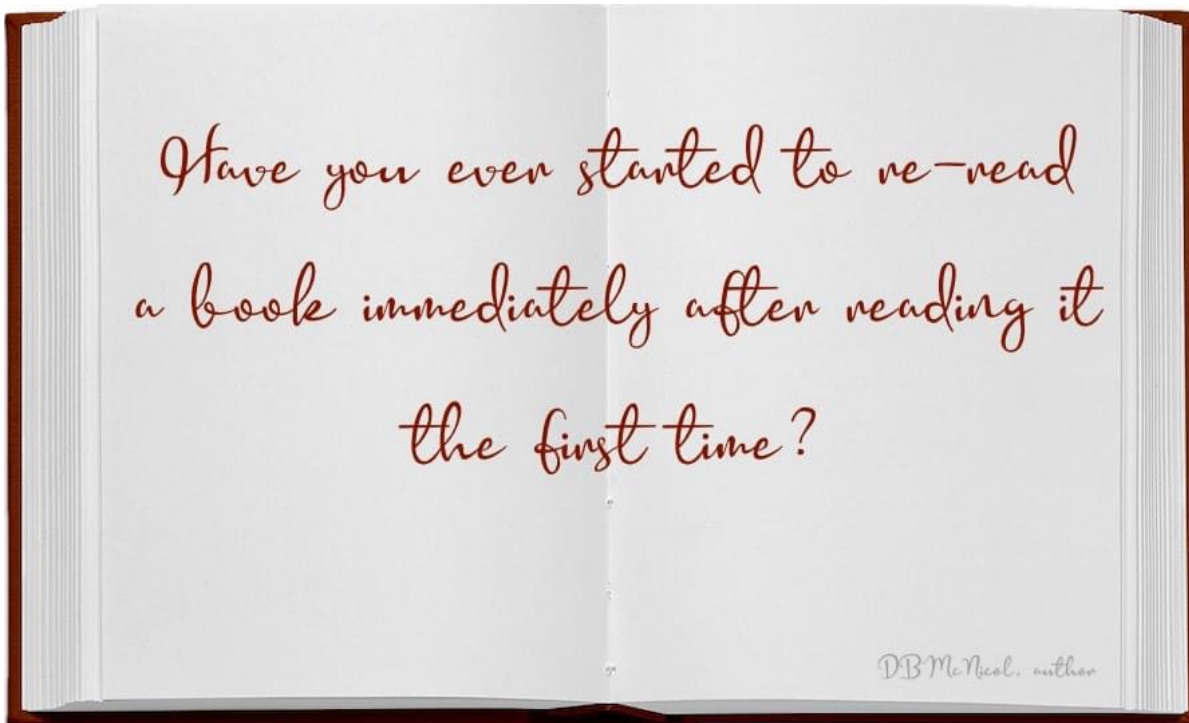 Have you ever started to re-read
a book immediately after reading it
the first time?
DB McNicol, author